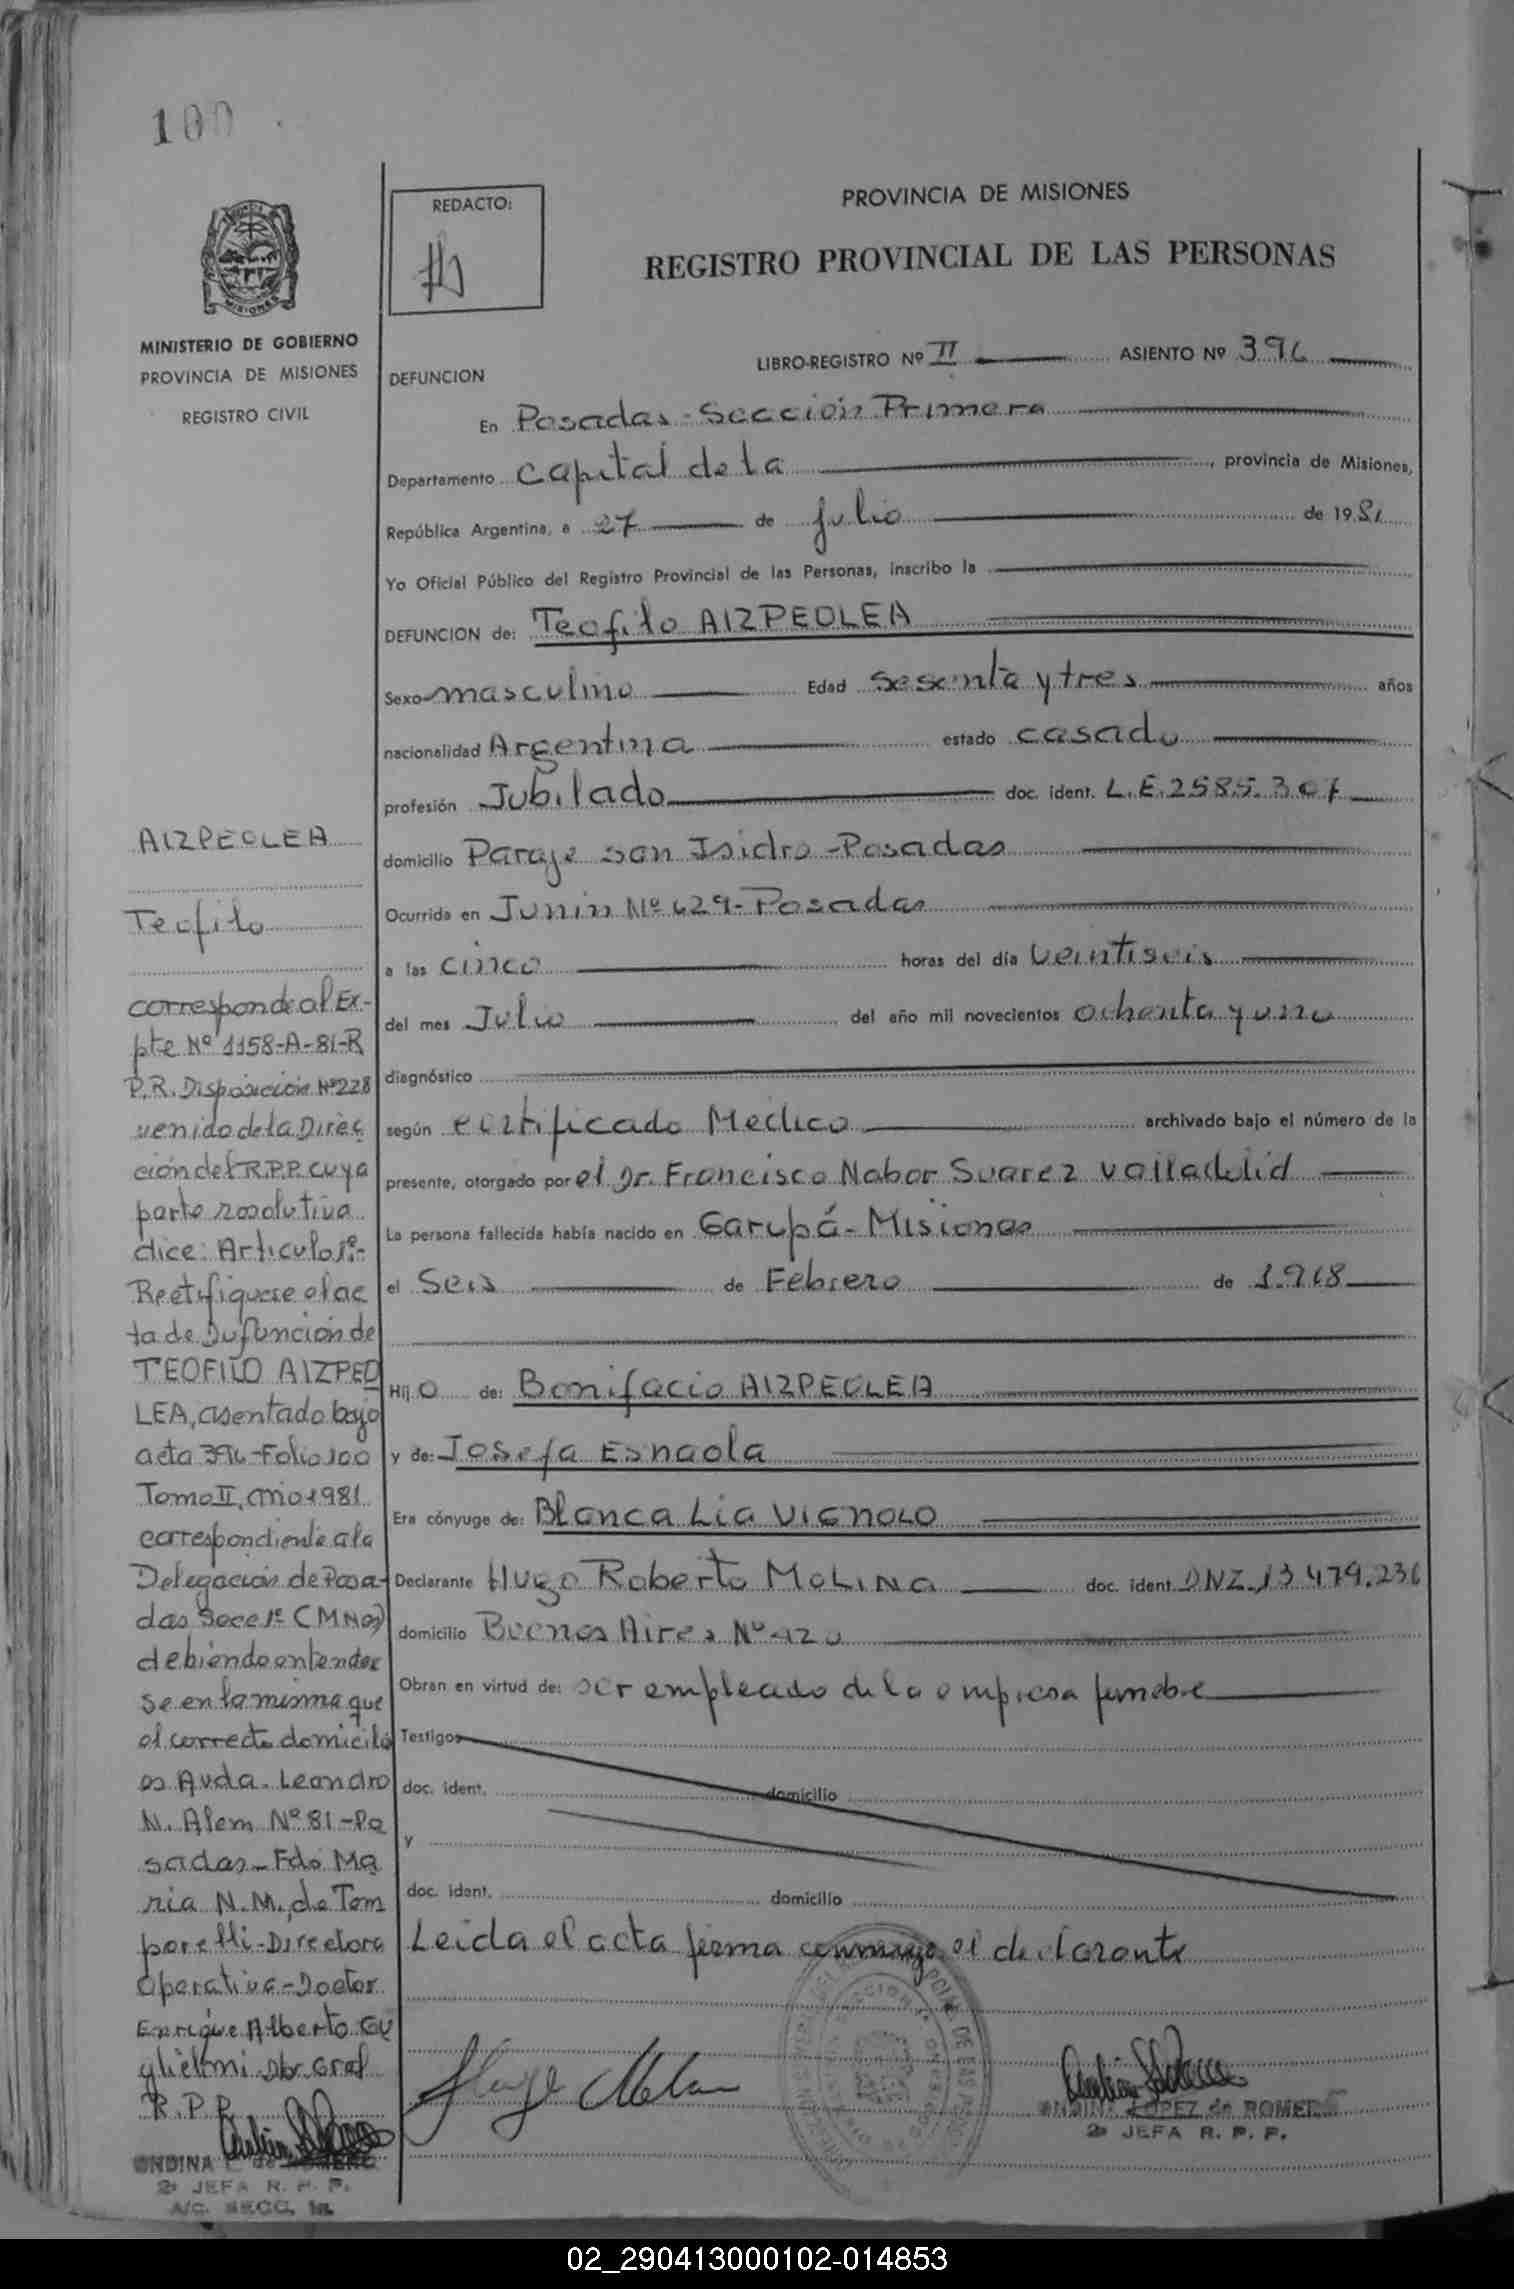 100
REDACTO:
PROVINCIA DE MISIONES
REGISTRO PROVINCIAL DE LAS PERSONAS
MINISTERIO DE GOBIERNO
PROVINCIA DE MISIONES
REGISTRO CIVIL
LIBRO-REGISTRO Nº II ASIENTO Nº 396
DEFUNCION
En Posadas-Sección Primera
Departamento Capital de la, provincia de Misiones,
República Argentina, a 27 de Julio de 1981
Yo Oficial Público del Registro Provincial de las Personas, inscribo la
DEFUNCION de: Teofilo AIZPEOLEA
Sexo masculino Edad Sesenta y tres años
nacionalidad Argentina estado casado
profesión Jubilado doc. ident. L.E.2585.307
domicilio Paraje san Isidro-Posadas
Ocurrida en Junin Nº 629-Posadas
a las cinco horas del día veintiseis
del mes Julio del año mil novecientos ochenta y uno
diagnóstico
según certificado Medico archivado bajo el número de la
presente, otorgado por el Dr. Francisco Nabor Suarez Valladolid
La persona fallecida había nacido en Garupá-Misiones
el Seis de Febrero de 1.918
Hijo de: Bonifacio AIZPEOLEA
y de: Josefa Esnaola
Era cónyuge de: Blanca Lia VIGNOLO
Declarante Hugo Roberto MOLINA doc. ident. DNI. 13 479.236
domicilio Buenos Aires Nº 420
Obran en virtud de: ser empleado de la empresa funebre
Testigos
doc. ident. domicilio
y
doc. ident. domicilio
Leida el acta firma conmigo el declarante
ONDINA LOPEZ de ROMERO
2ª JEFA R. P. P.
AIZPEOLEA
Teofilo
corresponde al Ex-
pte Nº 1158-A-81-R
P.R. Disposición Nº228
venido de la Direc
ción del R.P.P. cuya
parte resolutiva
dice: Articulo 1º-
Rectifiquese el ac
ta de Dufunción de
TEOFILO AIZPEO
LEA, asentado bajo
acta 396-Folio 100
Tomo II, año 1981
correspondiente a la
Delegación de Posa-
das Secc 1ª (MNes)
debiendo entender
se en la misma que
el correcto domicilio
es Avda. Leandro
N. Alem Nº 81-Po
sadas-Fdo Ma
ria N.M. de Tom
porelli-Directora
Operativa-Doctor
Enrique Alberto Gu
glielmi Dtor Gral
R.P.P.
ONDINA L. de ROMERO
2ª JEFA R. P. P.
A/C. SECC. 1a.
02_290413000102-014853